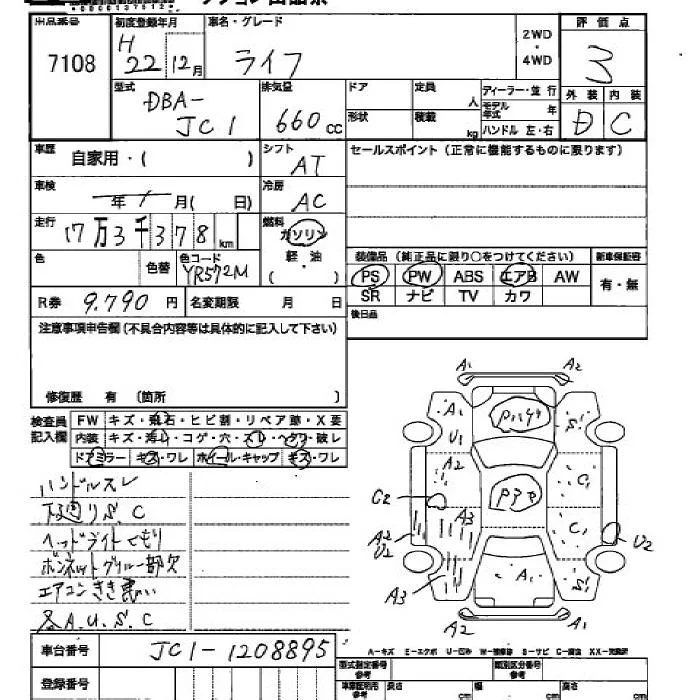 出品番号 初度登録年月 車名・グレード 2WD・4WD 評価点
7108 H 22 12月 ライフ 3
型式 DBA-JC1 排気量 660cc ドア 定員 人 ディーラー・並行
形状 積載 kg モデル年式 年 ハンドル 左・右
外装 内装
D C
車歴 自家用・( ) シフト AT セールスポイント(正常に機能するものに限ります)
車検 年 月( 日) 冷房 AC
走行 17万3千378km 燃料 ガソリン 軽・油 ( )
色 色替 色コード YR572M 装備品(純正品に限り○をつけてください) 新車保証書
PS PW ABS エアB AW 有・無
SR ナビ TV カワ
R券 9,790円 名変期限 月 日 後日品
注意事項申告欄(不具合内容等は具体的に記入して下さい)
修復歴 有 (箇所 )
検査員記入欄 FW キズ・飛石・ヒビ割・リペア跡・X要
内装 キズ・汚レ・コゲ・穴・スレ・ヘタリ・破レ
ドアミラー キズ・ワレ ホイール・キャップ キズ・ワレ
ハンドルスレ
下廻りS.C
ヘッドライトくもり
ボンネットグリル一部欠
エアコンきき悪い
各A.U.S.C
A1 A2
A1 S1
U1
A2 C1
C2
A3 C1
A2
U2 U2
A3 A1 S1
A2 A1
A-キズ E-エクボ U-凹み W-補修跡 S-サビ C-腐食 XX-交換済
車台番号 JC1-1208895
登録番号 型式指定番号 参考 類別区分番号 参考
長さ cm 幅 cm 高さ cm